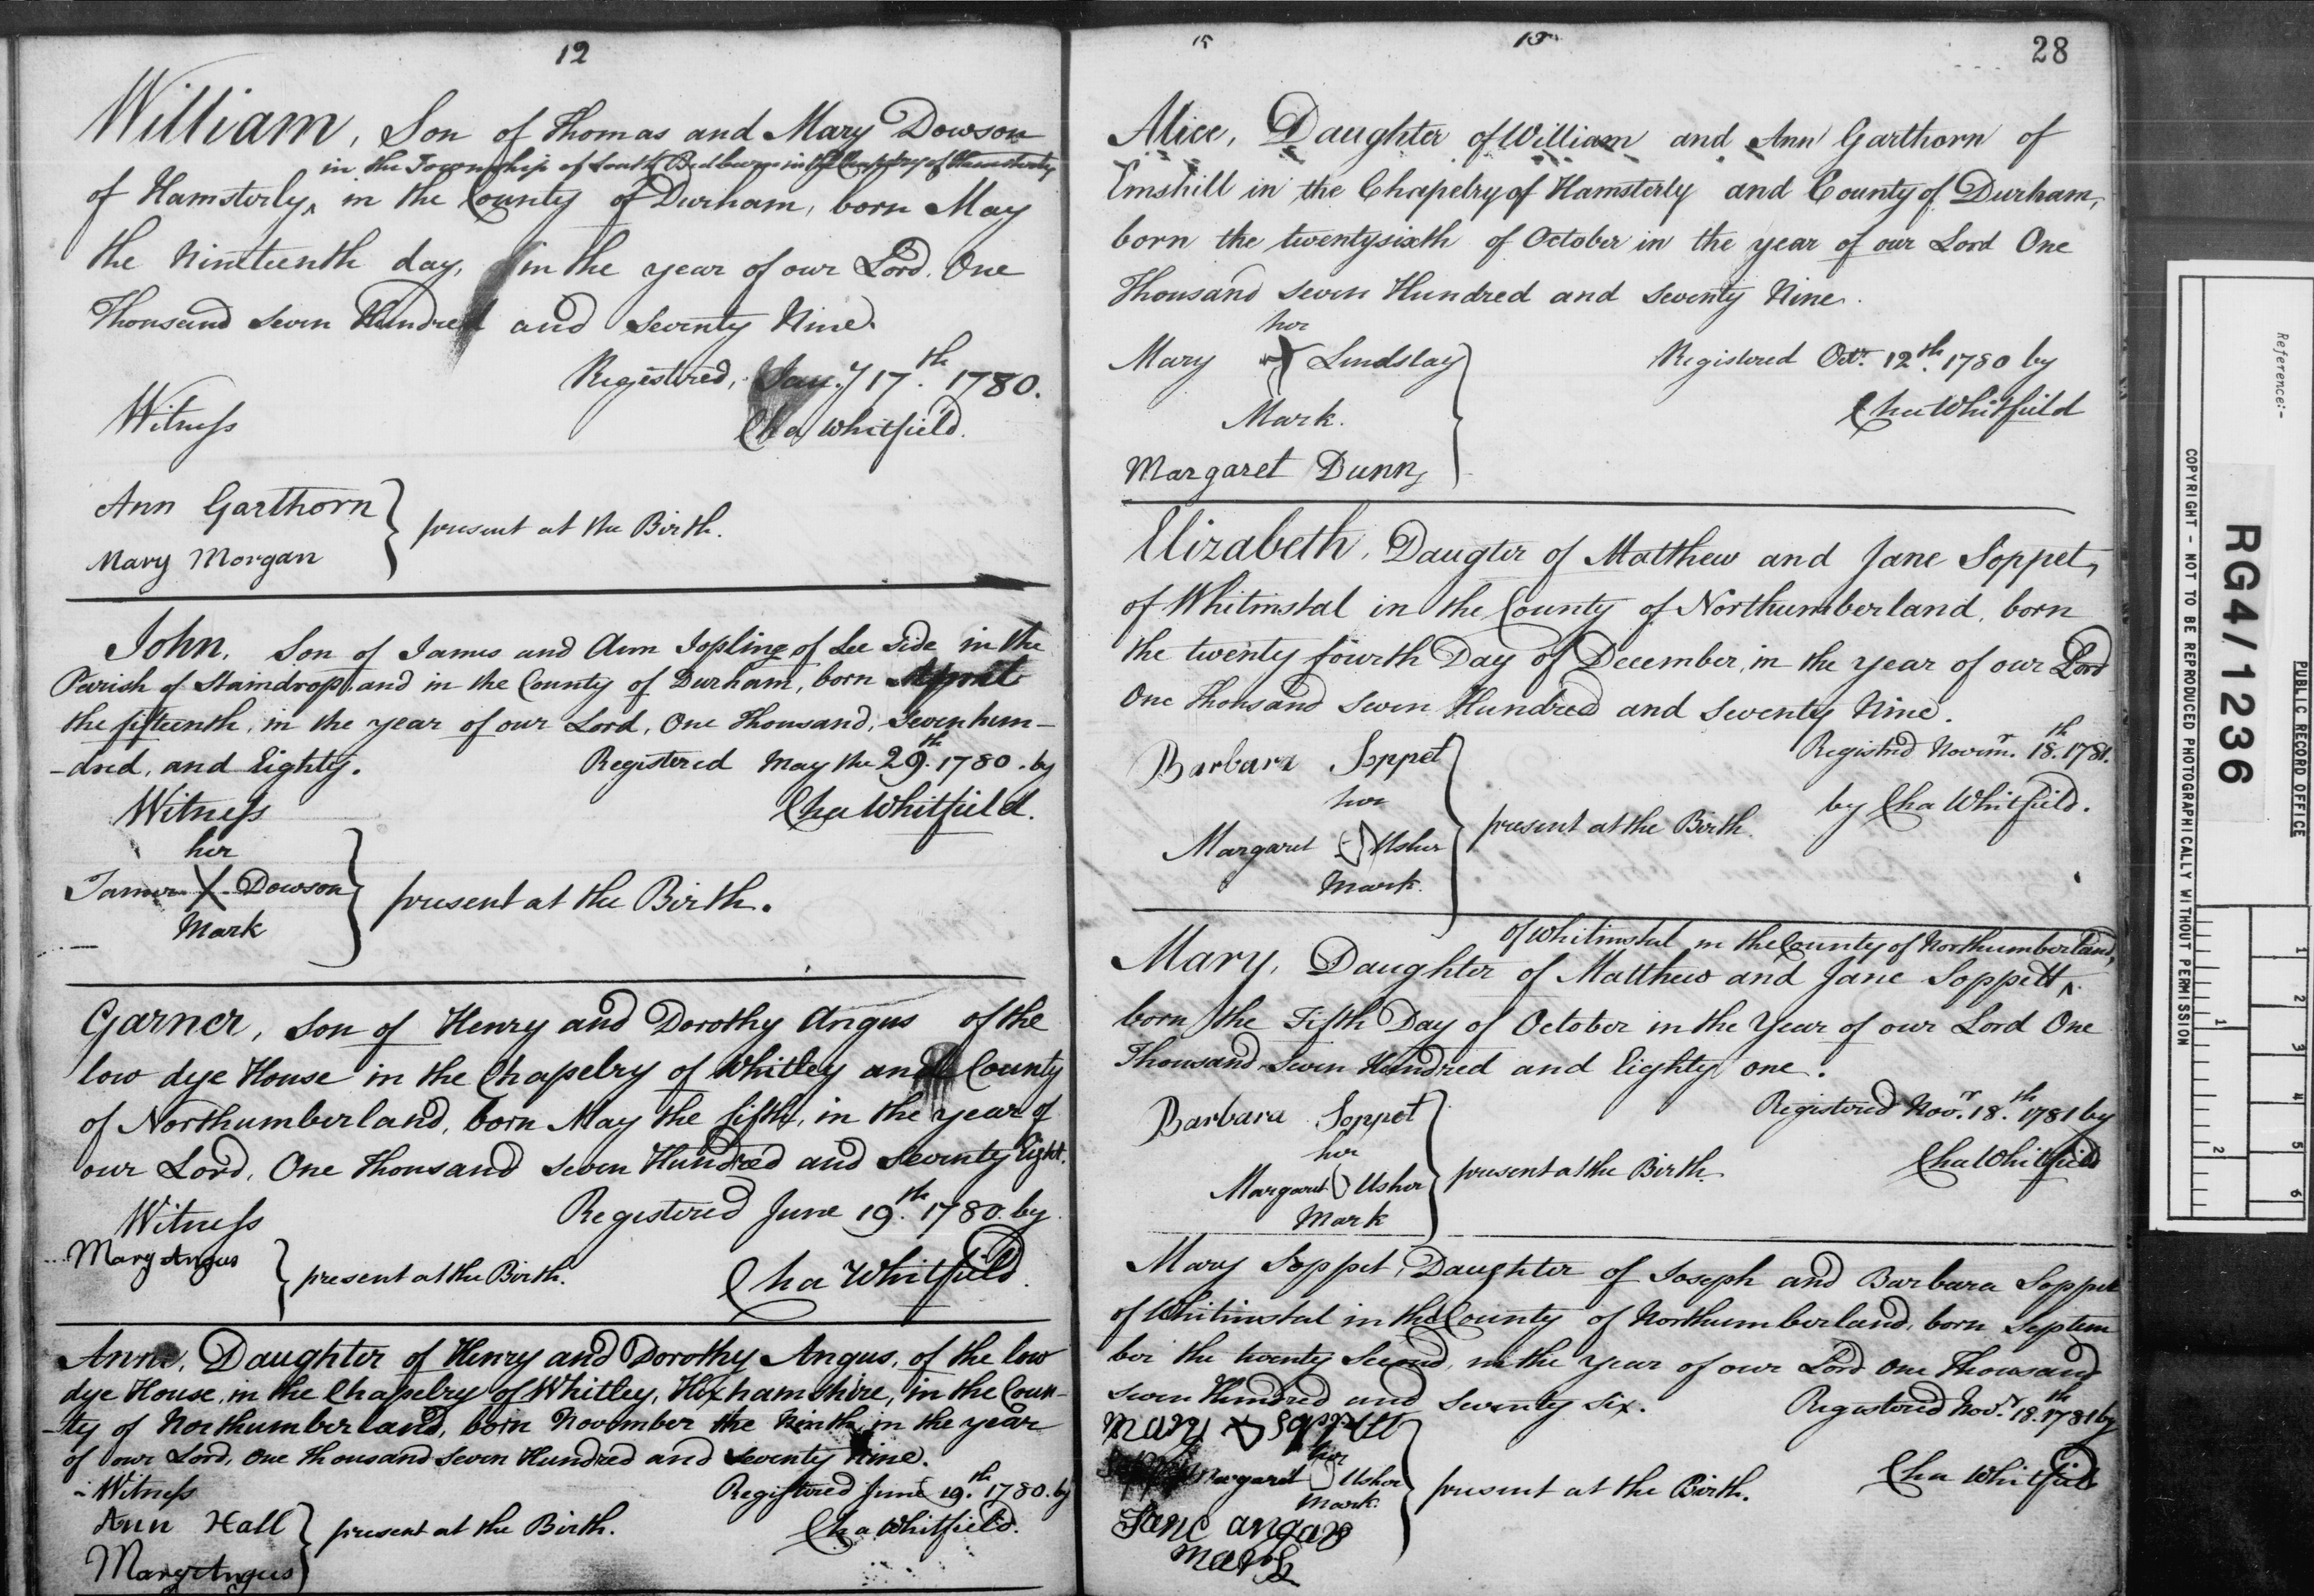 12
William, Son of Thomas and Mary Dowson
in the Township of South Bedburn in the Chapelry of Hamsterly
of Hamsterly, in the County of Durham, born May
the Nineteenth day, in the year of our Lord, One
Thousand Seven Hundred and Seventy Nine.
Registered, Jan.y 17.th 1780.
Witness
Cha Whitfield.
Ann Garthorn
present at the Birth.
Mary Morgan
John, Son of James and Ann Jopling of Lee Side in the
Parish of Staindrop, and in the County of Durham, born
the fifteenth, in the year of our Lord, One Thousand, Seven hun-
-dred, and Eighty.
Registered May the 29.th 1780. by
Witness
Cha Whitfield.
her
Tamer X Dowson
present at the Birth.
Mark
Garner, Son of Henry and Dorothy Angus of the
low dye House in the Chapelry of Whitley and County
of Northumberland, born May the fifth, in the year of
our Lord, One Thousand Seven Hundred and Seventy Eight.
Witness
Registered June 19.th 1780. by
Mary Angus
present at the Birth.
Cha Whitfield.
Ann, Daughter of Henry and Dorothy Angus, of the low
dye House, in the Chapelry of Whitley, Hexhamshire, in the Coun-
-ty of Northumberland, born November the Ninth in the year
of our Lord, One Thousand Seven Hundred and Seventy Nine.
Witness
Registered June 19.th 1780. by
Ann Hall
present at the Birth.
Cha Whitfield.
Mary Angus
15
28
Alice, Daughter of William and Ann Garthorn of
Emshill in the Chapelry of Hamsterly and County of Durham,
born the twentysixth of October in the year of our Lord One
Thousand Seven Hundred and Seventy Nine.
her
Mary X Lindslay
Registered Octr. 12th. 1780 by
Mark.
Cha Whitfield
Margaret Dunn
Elizabeth, Daugter of Matthew and Jane Soppet,
of Whitinstal in the County of Northumberland, born
the twenty fourth Day of December, in the year of our Lord
One Thousand Seven Hundred and Seventy Nine.
Registrd Novemr. 18.th 1781.
Barbara Soppet
by Cha Whitfield.
her
Margaret Usher
present at the Birth.
Mark.
of Whitinstal in the County of Northumberland,
Mary, Daughter of Matthew and Jane Soppett
born the Fifth Day of October in the Year of our Lord One
Thousand Seven Hundred and Eighty one.
Registered Novr. 18.th 1781 by
Barbara Soppet
her
Cha Whitfield
Margaret Usher
present at the Birth.
Mark
Mary Soppet, Daughter of Joseph and Barbara Soppet
of Whitinstal in the County of Northumberland, born Septem
ber the twenty Second, in the Year of our Lord One Thousand
Seven Hundred and Seventy Six.
Registered Novr. 18.th 1781 by
Mary X Soppett
her
Margaret Usher
present at the Birth.
Cha Whitfield
Mark.
Jane angas
mark
Reference:-
RG4/1236
PUBLIC RECORD OFFICE
COPYRIGHT - NOT TO BE REPRODUCED PHOTOGRAPHICALLY WITHOUT PERMISSION
1 2 3 4 5 6
1 2